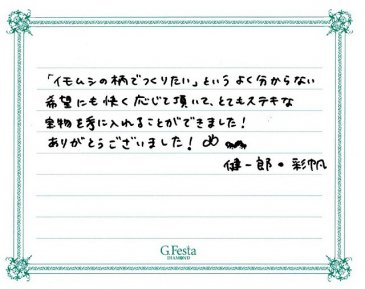 「イモムシの柄でつくりたい」というよく分からない
希望にも快く応じて頂いて、とてもステキな
宝物を手に入れることができました！
ありがとうございました！
健一郎・彩帆
G.Festa
DIAMOND